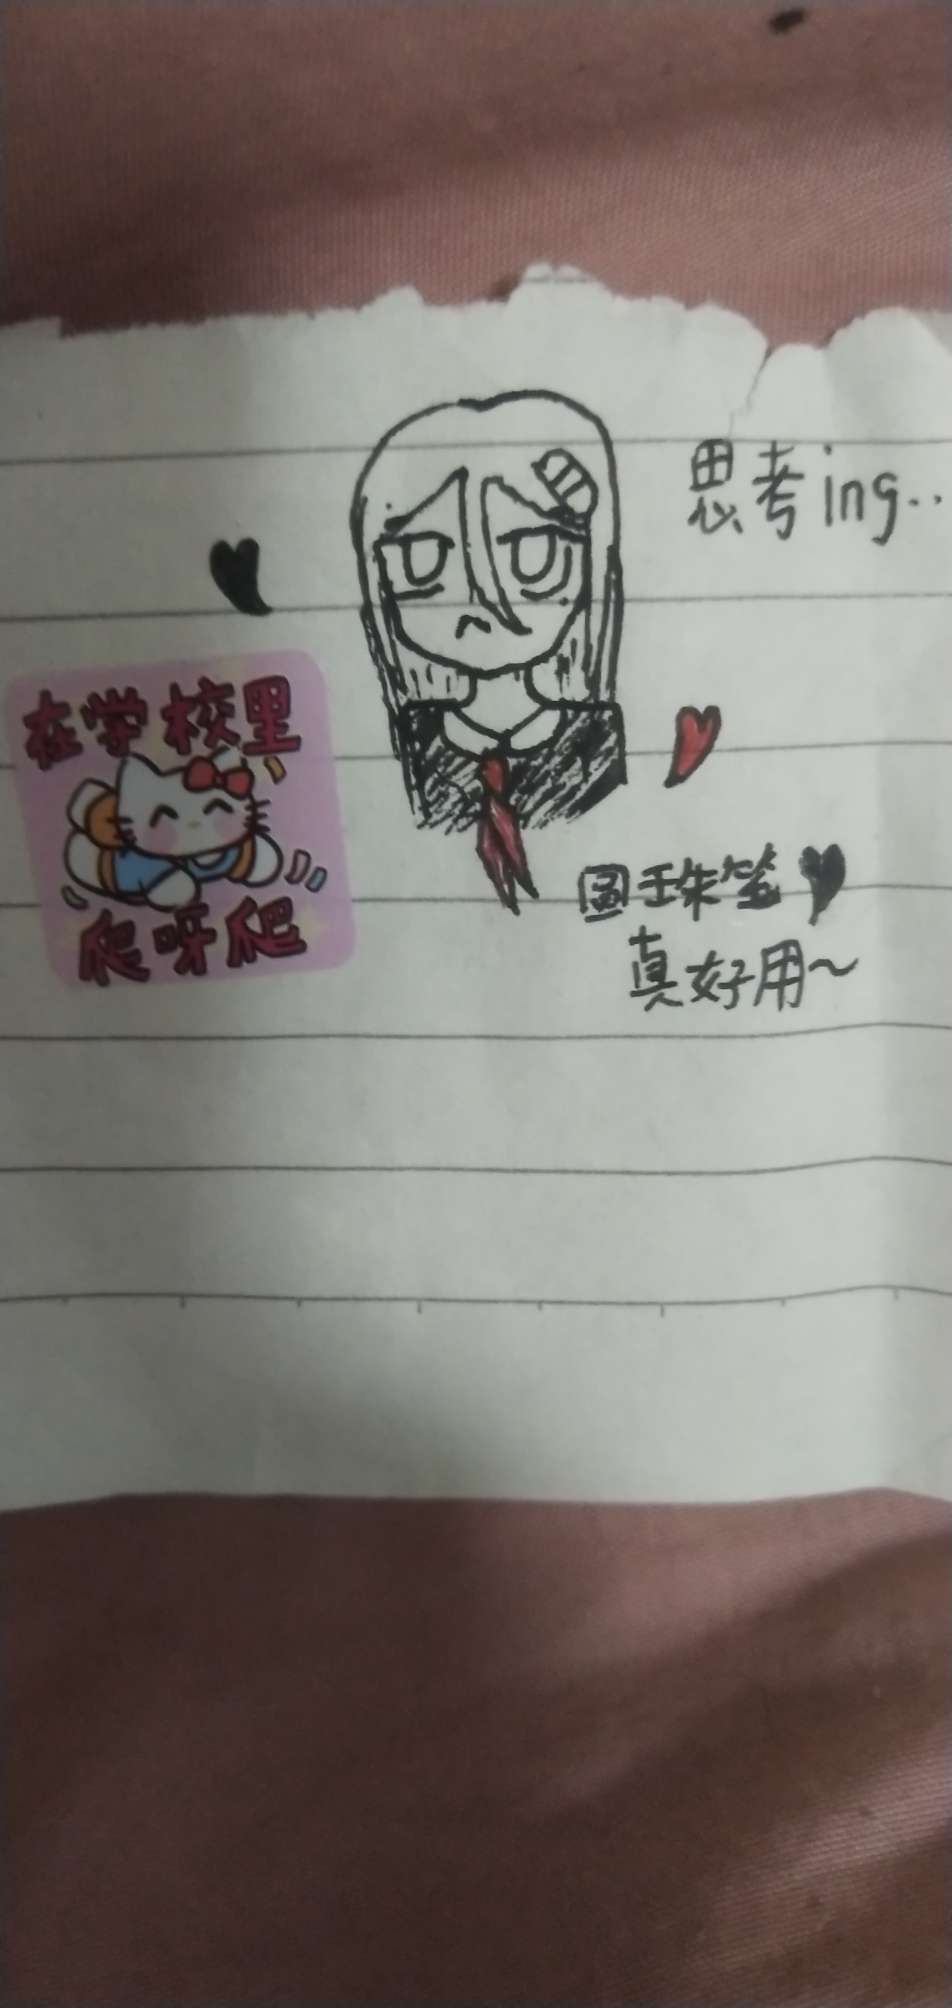 思考ing..
在学校里
爬呀爬
圆珠笔
真好用~